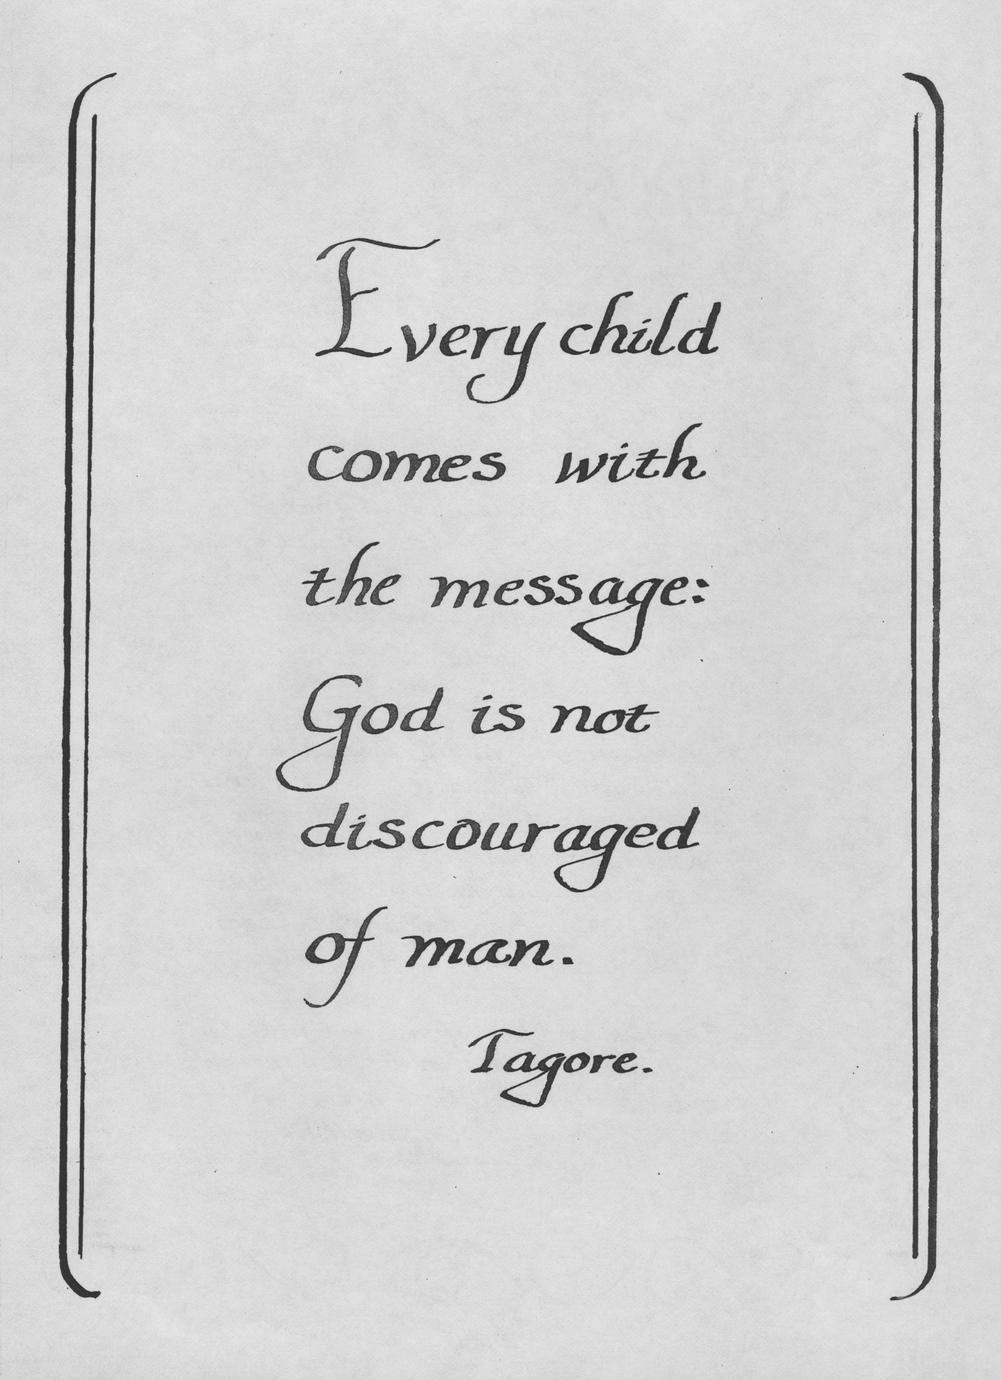 Every child
comes with
the message:
God is not
discouraged
of man.
Tagore.